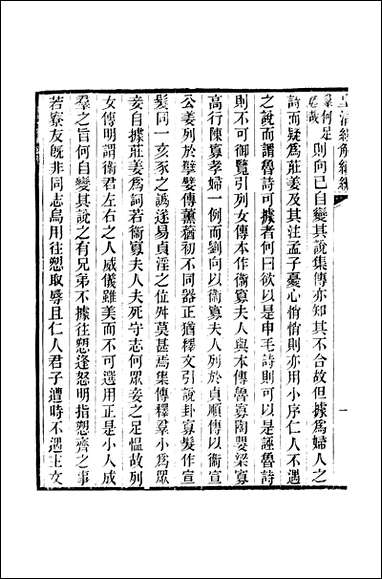 皇清經解續編
羣何足怨哉則向已自變其說集傳亦知其不合故但據爲婦人之
詩而疑爲莊姜及其注孟子憂心悄悄則亦用小序仁人不遇
之說而謂魯詩可據者何曰欲以是申毛詩則可以是誣魯詩
則不可御覽引列女傳本作衞寡夫人與本傳魯寡陶嬰梁寡
高行陳寡孝婦一例而劉向以衞寡夫人列於貞順傳以衞宣
公姜列於孼嬖傳薰蕕初不同器正猶釋文引說卦寡髮作宣
髮同一亥豕之譌遂易貞淫之位舛莫甚焉集傳釋羣小爲眾
妾自據莊姜爲詞若衞寡夫人夫死守志何眾妾之足慍故列
女傳明謂衞君左右之人威儀雖美而不可選用正是小人成
羣之旨何自變其說之有兄弟不據往愬逢怒明指愬齊之事
若寮友旣非同志烏用往愬取辱且仁人君子遭時不遇王文
一